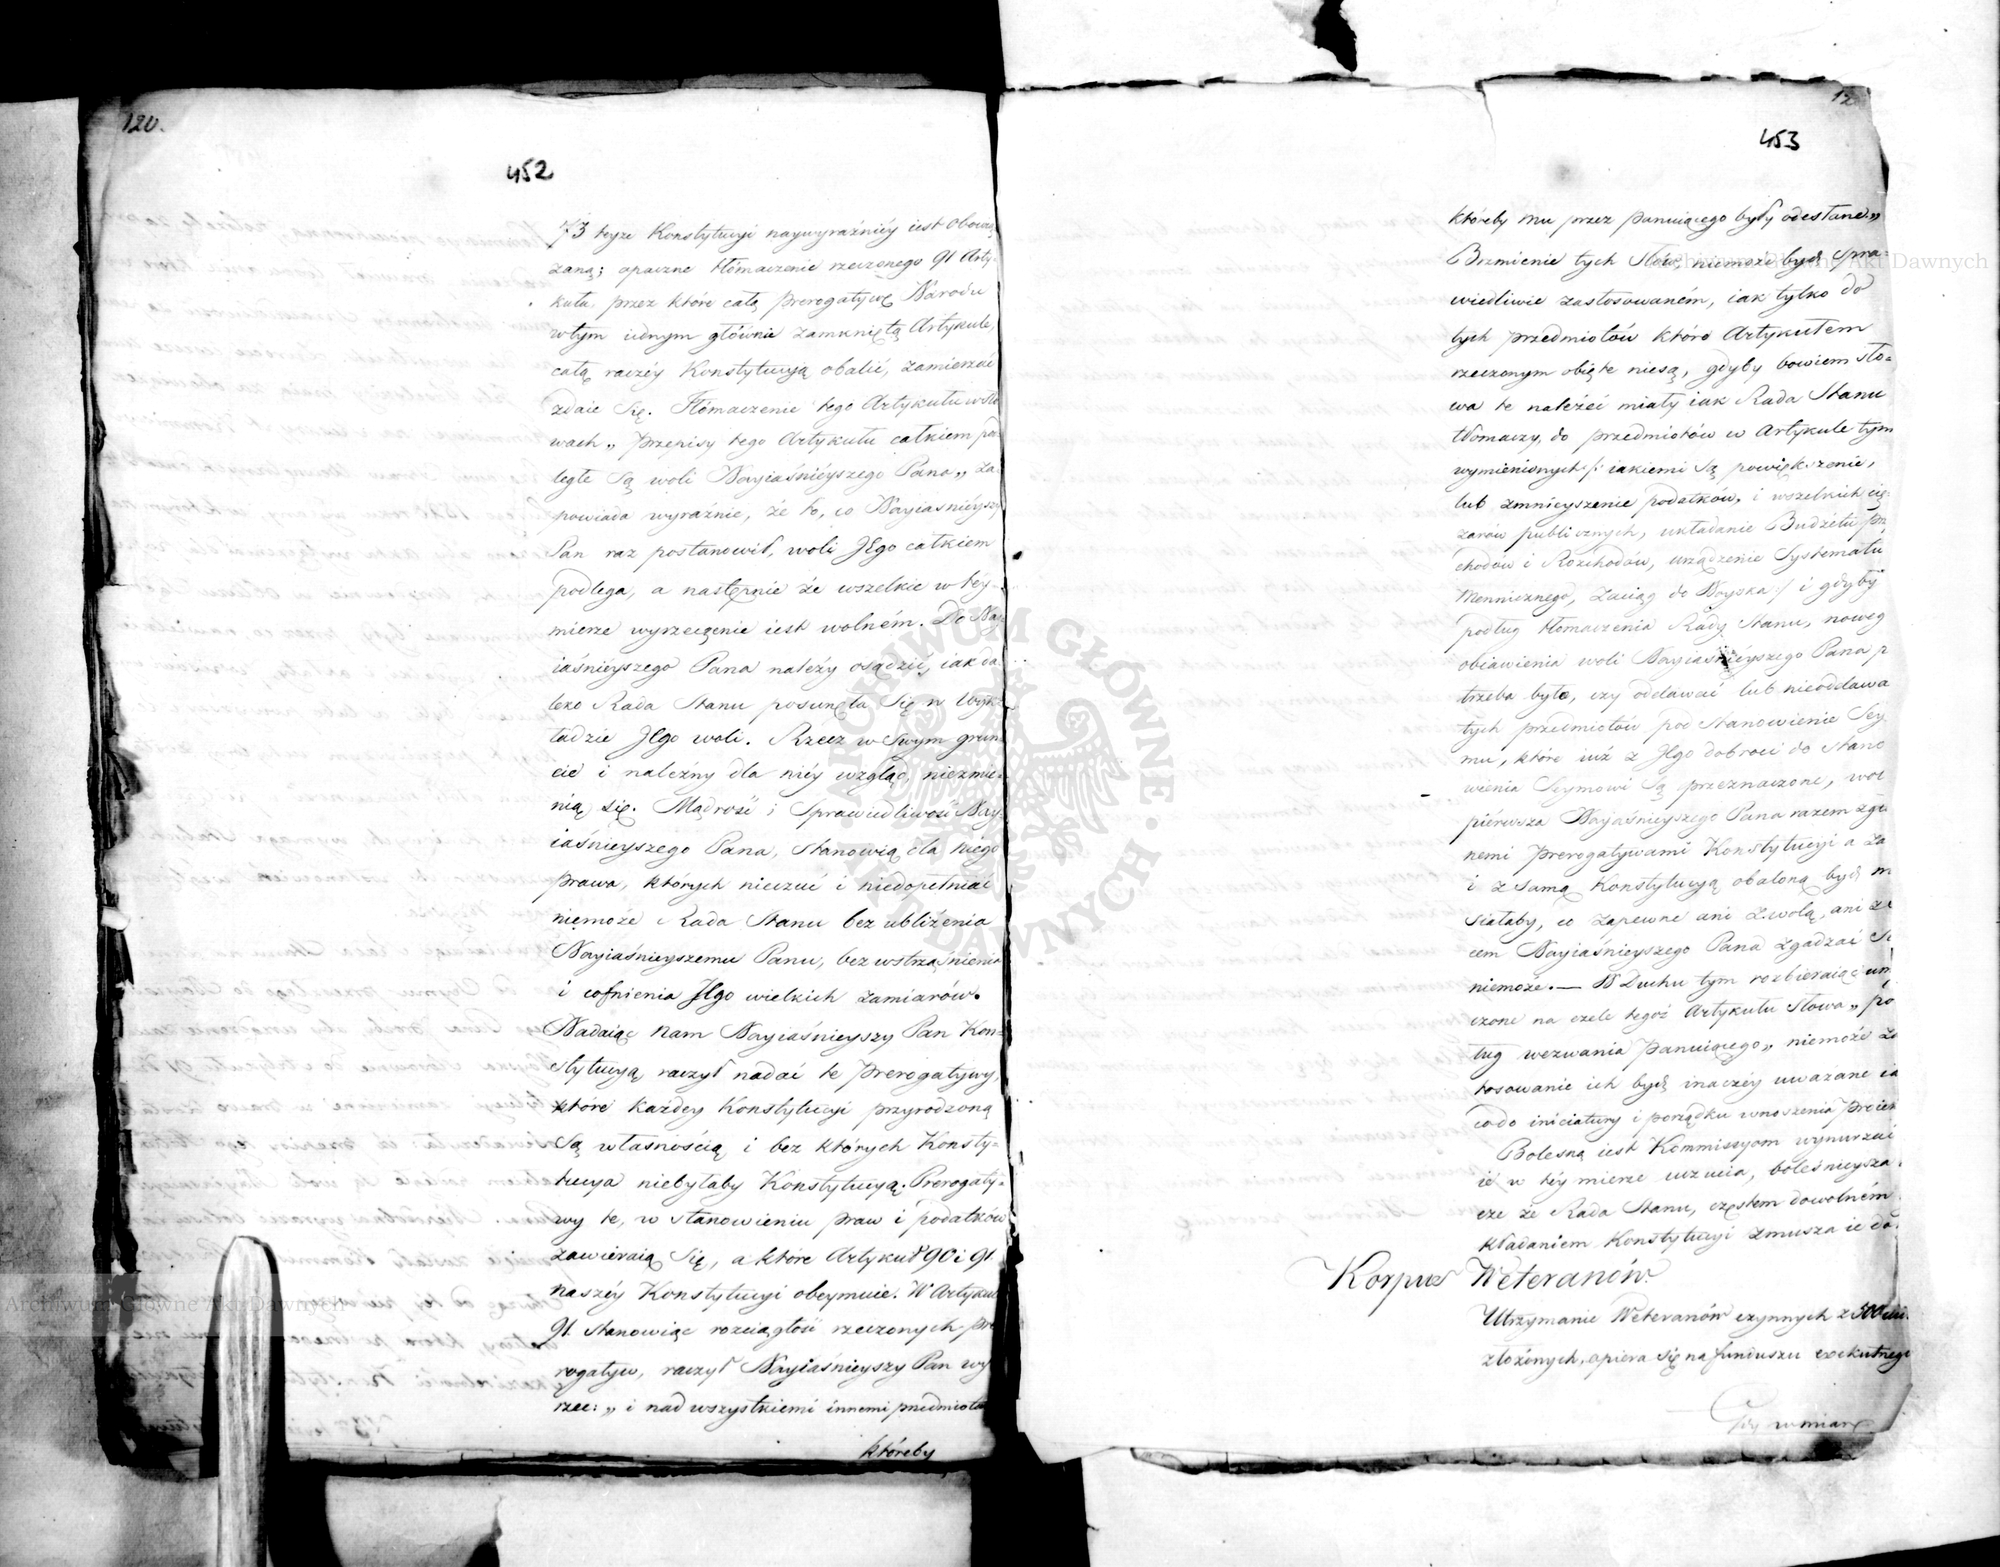 120.
452
73 teyże Konstytucyi naywyraźniéy iest obowią
zaną; opaczne tłómaczenie rzeczonego 91 Arty-
kułu, przez które całą prerogatywę Narodu
w tym iednym głównie zamkniętą Artykule,
całą raczéy Konstytucyą obalić, zamierzać
zdaie się. Tłómaczenie tego Artykułu w sło
wach „ przepisy tego Artykułu całkiem pod
ległe są woli Nayiaśniéyszego Pana „ za
powiada wyraźnie, że to, co Nayiaśniéyszy
Pan raz postanowił, woli Jego całkiem
podlega, a następnie że wszelkie w téy
mierze wyrzeczenie iest wolném. Do Nay
iaśnieyszego Pana należy osądzić, iak da
leko Rada Stanu posunęła się w wykł
ładzie Jego woli. Rzecz w swym grun
cie i należny dla niéy wzgląd, niezmie
nią się. Mądrość i Sprawiedliwość Nay-
iaśnieyszego Pana, stanowią dla niego
prawa, których nieczuć i niedopełniać
niemoże Rada Stanu bez ubliżenia
Nayiaśnieyszemu Panu, bez wstrząśnienia
i cofnienia Jego wielkich zamiarów.
Nadaiąc nam Nayiaśnieyszy Pan Kon-
stytucyą raczył nadać te prerogatywy,
które każdey Konstytucyi przyrodzoną
są własnością i bez których Konsty-
tucya niebyłaby Konstytucyą. Prerogaty-
wy te, w stanowieniu praw i podatków
zawieraią się, a które Artykuł 90 i 91
naszéy Konstytucyi obeymuie. W Artykule
91. stanowiąc rozciągłość rzeczonych pre
rogatyw, raczył Nayiaśnieyszy Pan wy
rzec: „ i nad wszystkiemi innemi przedmiota
któreby
12
453
któreby mu przez panuiącego były odesłane „
Brzmienie tych słów, niemoże bydź spra-
wiedliwie zastosowaném, iak tylko do
tych przedmiotów które Artykułem
rzeczonym obięte niesą, gdyby bowiem sło-
wa te należeć miały iak Rada Stanu
tłomaczy, do przedmiotów w Artykule tym
wymienionych /: iakiemi są powiększenie,
lub zmnieyszenie podatków, i wszelkich cię-
żarów publicznych, układanie Budżetu Przy
chodów i Rozchodów, urządzenie Systematu
Mennicznego, zaciąg do Woyska :/ i gdyby
podług tłomaczenia Rady Stanu, noweg
obiawienia woli Nayiaśnieyszego Pana p
trzeba było, czy oddawać lub nieoddawa
tych przedmiotów pod stanowienie Sey
mu, które iuż z Jego dobroci do stano
wienia Seymowi są przeznaczone, wol
pierwsza Nayiaśnieyszego Pana razem z głó
nemi prerogatywami Konstytucyi a za
i z samą Konstytucyą obaloną bydź m
siałaby, co zapewne ani z wolą, ani z s
cem Nayiaśnieyszego Pana zgadzać si
niemoże. — W Duchu tym rozbieraiąc um
czone na czele tegoż Artykułu słowa „ po
ług wezwania panuiącego „ niemoże za
tosowanie ich bydź inaczéy uważane ia
co do iniciatury i porządku wnoszenia Proiek
Bolesną iest Kommissyom wynurzać
ie w téy mierze uczucia, boleśnieysza
cze że Rada Stanu, częstem dowolném
kładaniem Konstytucyi zmusza ie do
Korpus Weteranów.
Utrzymanie Weteranów czynnych z 500 lud.
złożonych, opiera się na funduszu exekutnego
Gdy w miarę
ARCHIWUM GŁÓWNE AKT DAWNYCH
Archiwum Główne Akt Dawnych
Archiwum Główne Akt Dawnych